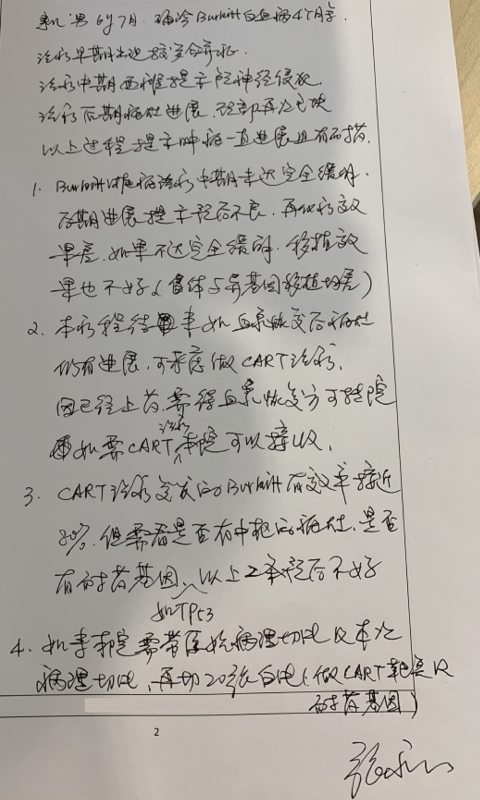 患儿 男 6岁7月. 确诊Burkitt白血病4个月余.
治疗早期出现较安全并
治疗中期 西 提示 神经侵犯
治疗后期病灶进展, 再次包块
以上过程提示肿瘤一直进展且有耐药.
1. Burkitt淋巴瘤治疗中期未达完全缓解.
后期进展提示预后不良. 再化疗效
果差. 如果不达完全缓解. 移植效
果也不好(自体与异基因移植均差)
2. 本疗程结束 如血象恢复后病灶
仍有进展. 可考虑做CART治疗.
因已经上药. 需待血象恢复方可转院
如需CART治疗本院可以接收.
3. CART治疗复发的Burkitt有效率接近
80%. 但需看是否有中枢的病灶. 是否
有耐药基因, 以上2条预后不好
如TP53
4. 如来本院需带原始病理切片及本次
病理切片. 再切20张白片(做CART靶点及
耐药基因)
2